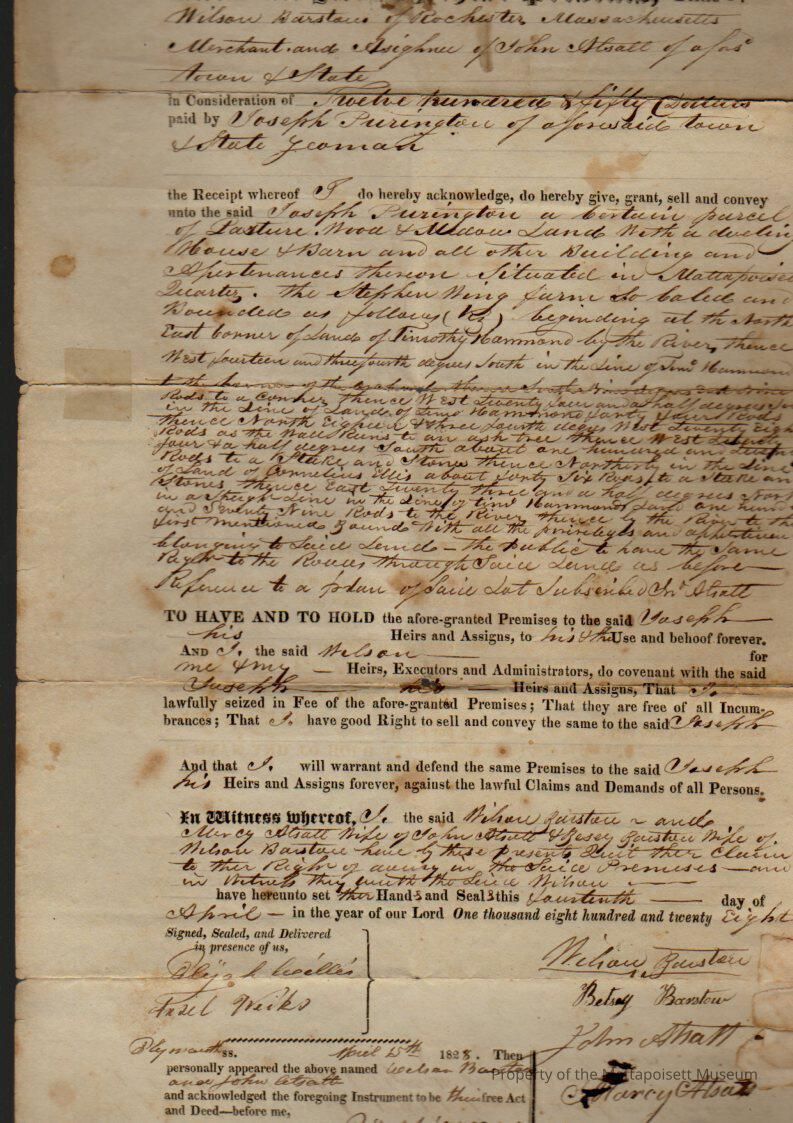 Wilson Barstow of Rochester Massachusetts
Merchant and Asighnee of John Atsatt of afors
town & State
in Consideration of Twelve hundred & fifty Dollars
paid by Joseph Purington of aforesaid town
& State yeoman
the Receipt whereof I do hereby acknowledge, do hereby give, grant, sell and convey
unto the said Joseph Purington a certain parcel
of Pasture Wood & Medow Land With a
House & Barn and all other Building and
Apertenances thereon Situated in Mattapoiset
Quarter. the Stephen Wing farm So caled and
Bounded as follows (Viz) beginding at th North
East corner of Land of Timothy Hammond by the River, thence
West fourteen and three fourth degrees South in the Line of Timo Hammond
Rods to a corner thence West Twenty four and a half degrees
in the Line of Land of Timo Hammond forty four Rods
thence North Eighteen & three fourth degs West Twenty Eigh
Rods as the Wall Runs to an ash tree thence West
four & a half degrees South about one hundred and
Rods to a Stake and Stones thence Northerly in the Line
of Land of Cornelius Ellis about forty Six Rods to a Stake an
Stones thence East Twenty three and a half degrees Nort
in a Straight Line in the Line of Timo Hammonds Land one hund
and Twenty Nine Rods to the River thence by the River to the
first mentioned Bound With all the priviledges and
belonging to Said Land – the Public to have the Same
Right to the Roads through Said Land as before
Reference to a plan of Said Lot Subscribed Jn° Atsatt
TO HAVE AND TO HOLD the afore-granted Premises to the said Joseph
his Heirs and Assigns, to his & the Use and behoof forever.
AND I. the said Wilson for
me & my Heirs, Executors and Administrators, do covenant with the said
Joseph his Heirs and Assigns, That I.
lawfully seized in Fee of the afore-granted Premises; That they are free of all Incum-
brances; That I. have good Right to sell and convey the same to the said Joseph
And that I. will warrant and defend the same Premises to the said Joseph
his Heirs and Assigns forever, against the lawful Claims and Demands of all Persons.
In Witness whereof, I. the said Wilson Barstow and
Mercy Atsatt Wife of John Atsatt & Betsey Barstow Wife of
Wilson Barstow have by these presents Quit ther Claim
to ther Right of in the Said Premises and
in Witness they with the Said Wilson
have hereunto set ther Hands and Seals this fourtenth day of
April in the year of our Lord One thousand eight hundred and twenty Eight
Signed, Sealed, and Delivered
in presence of us,
Wilson Barstow
Betsey Barstow
Ansel Weeks
John Atsatt
Plymouth ss. April 15th 1828. Then
personally appeared the above named Wilson Barstow
and John Atsatt
Marcy Atsatt
and acknowledged the foregoing Instrument to be their free Act
and Deed—before me,
Property of the Mattapoisett Museum